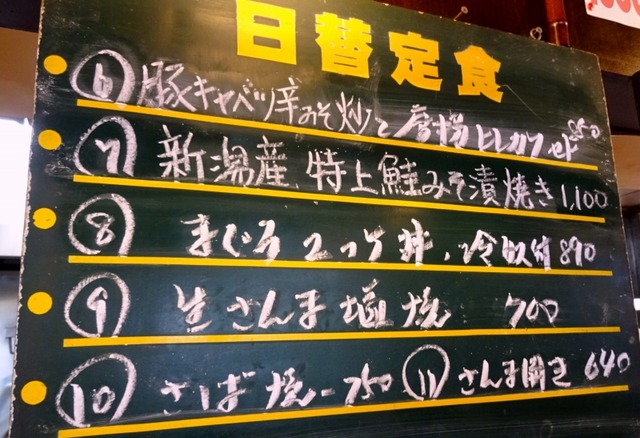 日替定食
⑥ 豚キャベツ辛みそ炒と 850
⑦ 新潟産 特上鮭みそ漬焼き 1,100
⑧ まぐろ 冷奴付 890
⑨ 生さんま塩焼 700
⑩ さば焼-750 ⑪ さんま開き 640